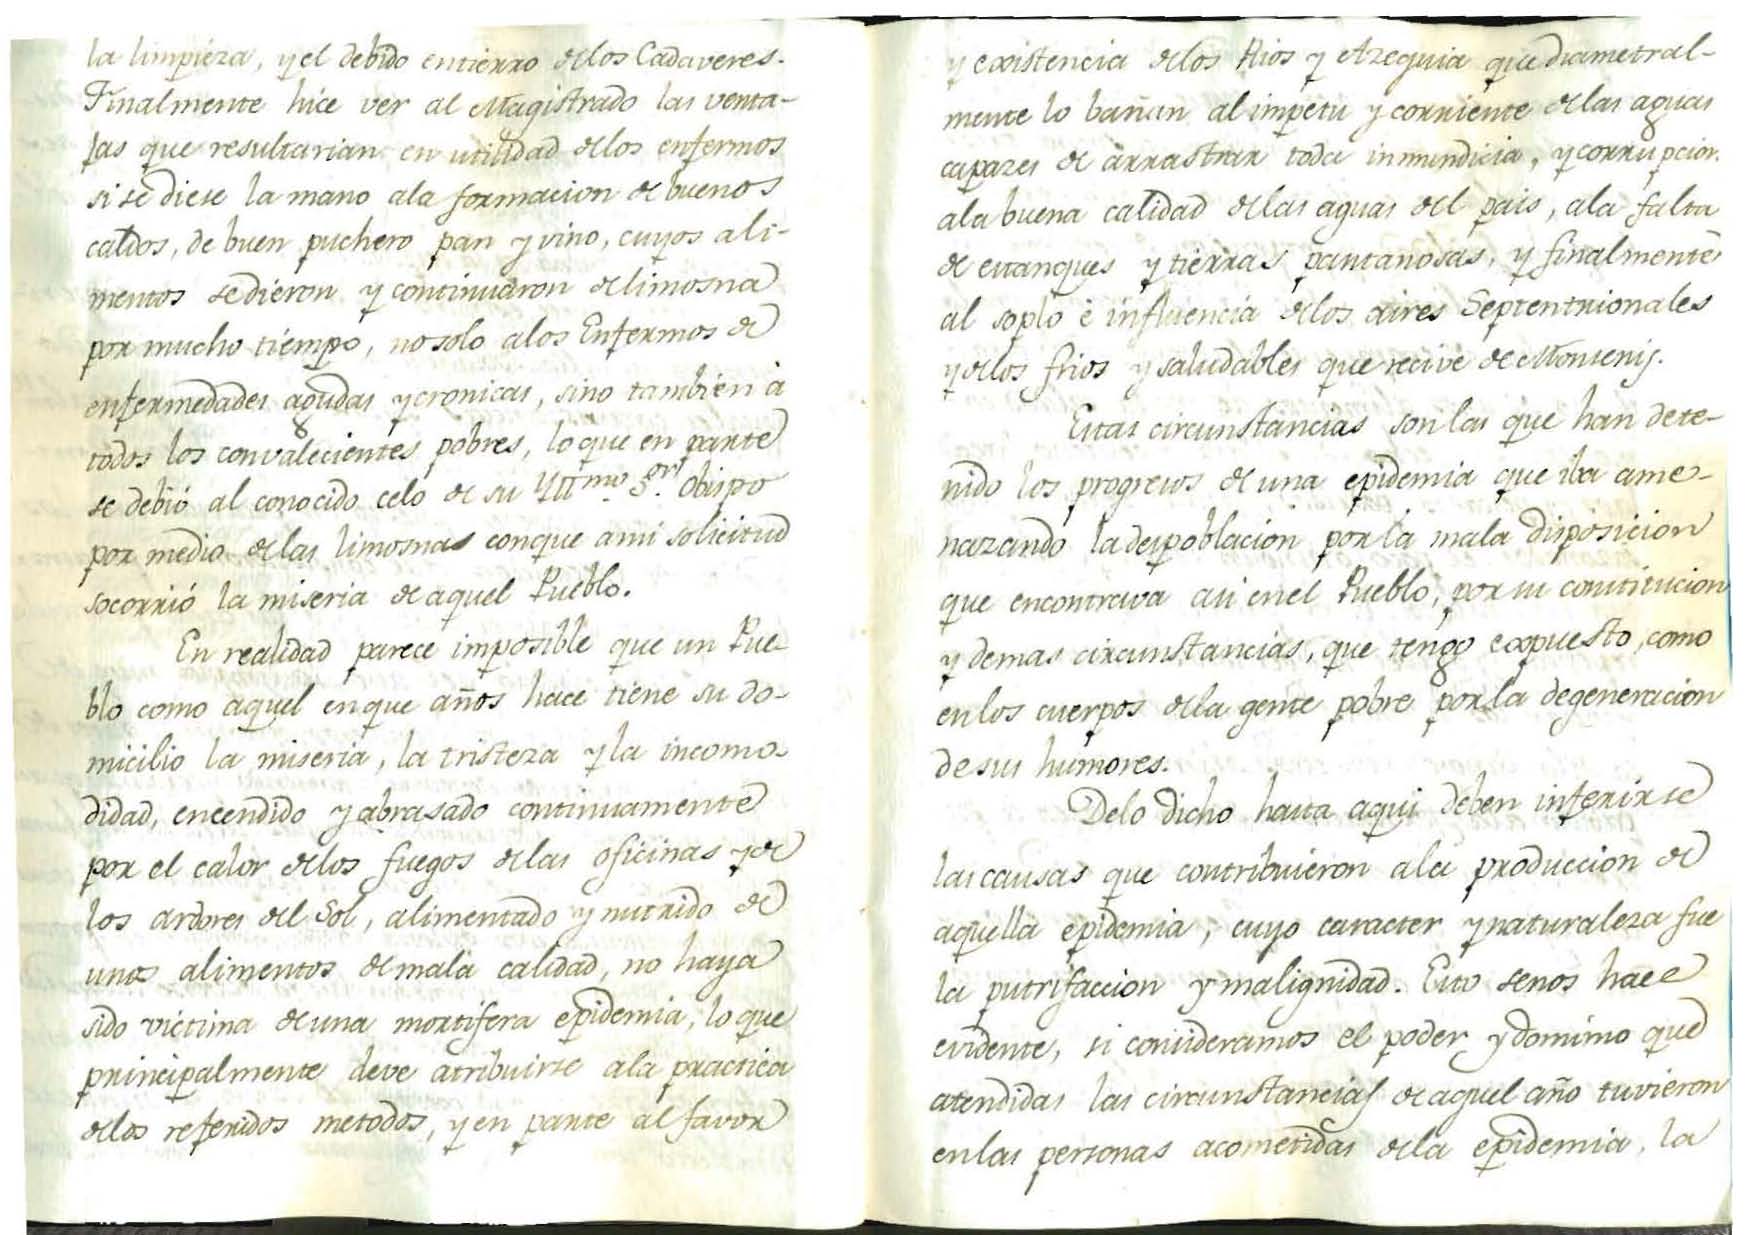 la limpieza, y el debido entierro de los Cadaveres.
Finalmente hice ver al Magistrado las venta-
jas que resultarian en utilidad de los enfermos
si se diese la mano ala formacion de buenos
caldos, de buen puchero pan y vino, cuyos ali-
mentos se dieron y continuaron de limosna
por mucho tiempo, no solo alos Enfermos de
enfermedades agudas y cronicas, sino tambien à
todos los convalecientes pobres, lo que en parte
se debió al conocido celo de su Yllmo. Sor. Obispo
por medio de las limosnas conque ami solicitud
socorrió la miseria de aquel Pueblo.
En realidad parece imposible que un Pue-
blo como aquel en que años hace tiene su do-
micilio la miseria, la tristeza y la incomo-
didad, encendido y abrasado continuamente
por el calor de los fuegos de las oficinas y de
los ardores del Sol, alimentado y nutrido de
unos alimentos de mala calidad, no haya
sido victima de una mortifera epidemia, lo que
principalmente deve atribuirse ala practica
de los referidos metodos, y en parte al favor
y existencia de los Rios y Azequia que diametral-
mente lo bañan al impetu y corriente de las aguas
capazes de arrastrar toda inmundicia, y corrupcion.
ala buena calidad de las aguas del pais, ala falta
de estanques y tierras pantanosas, y finalmente
al soplo è influencia de los aires Septentrionales
y de los frios y saludables que recive de Monsenij.
Estas circunstancias son las que han dete-
nido los progresos de una epidemia que iba ame-
nazando la despoblacion por la mala disposicion
que encontrava asi en el Pueblo, por su constitucion
y demas circunstancias, que tengo expuesto, como
en los cuerpos de la gente pobre por la degeneracion
de sus humores.
Delo dicho hasta aqui deben inferirse
las causas que contribuieron ala produccion de
aquella epidemia, cuyo caracter y naturaleza fue
la putrifaccion y malignidad. Esto senos hace
evidente, si consideramos el poder y dominio que
atendidas las circunstancias de aquel año tuvieron
en las personas acometidas de la epidemia, la